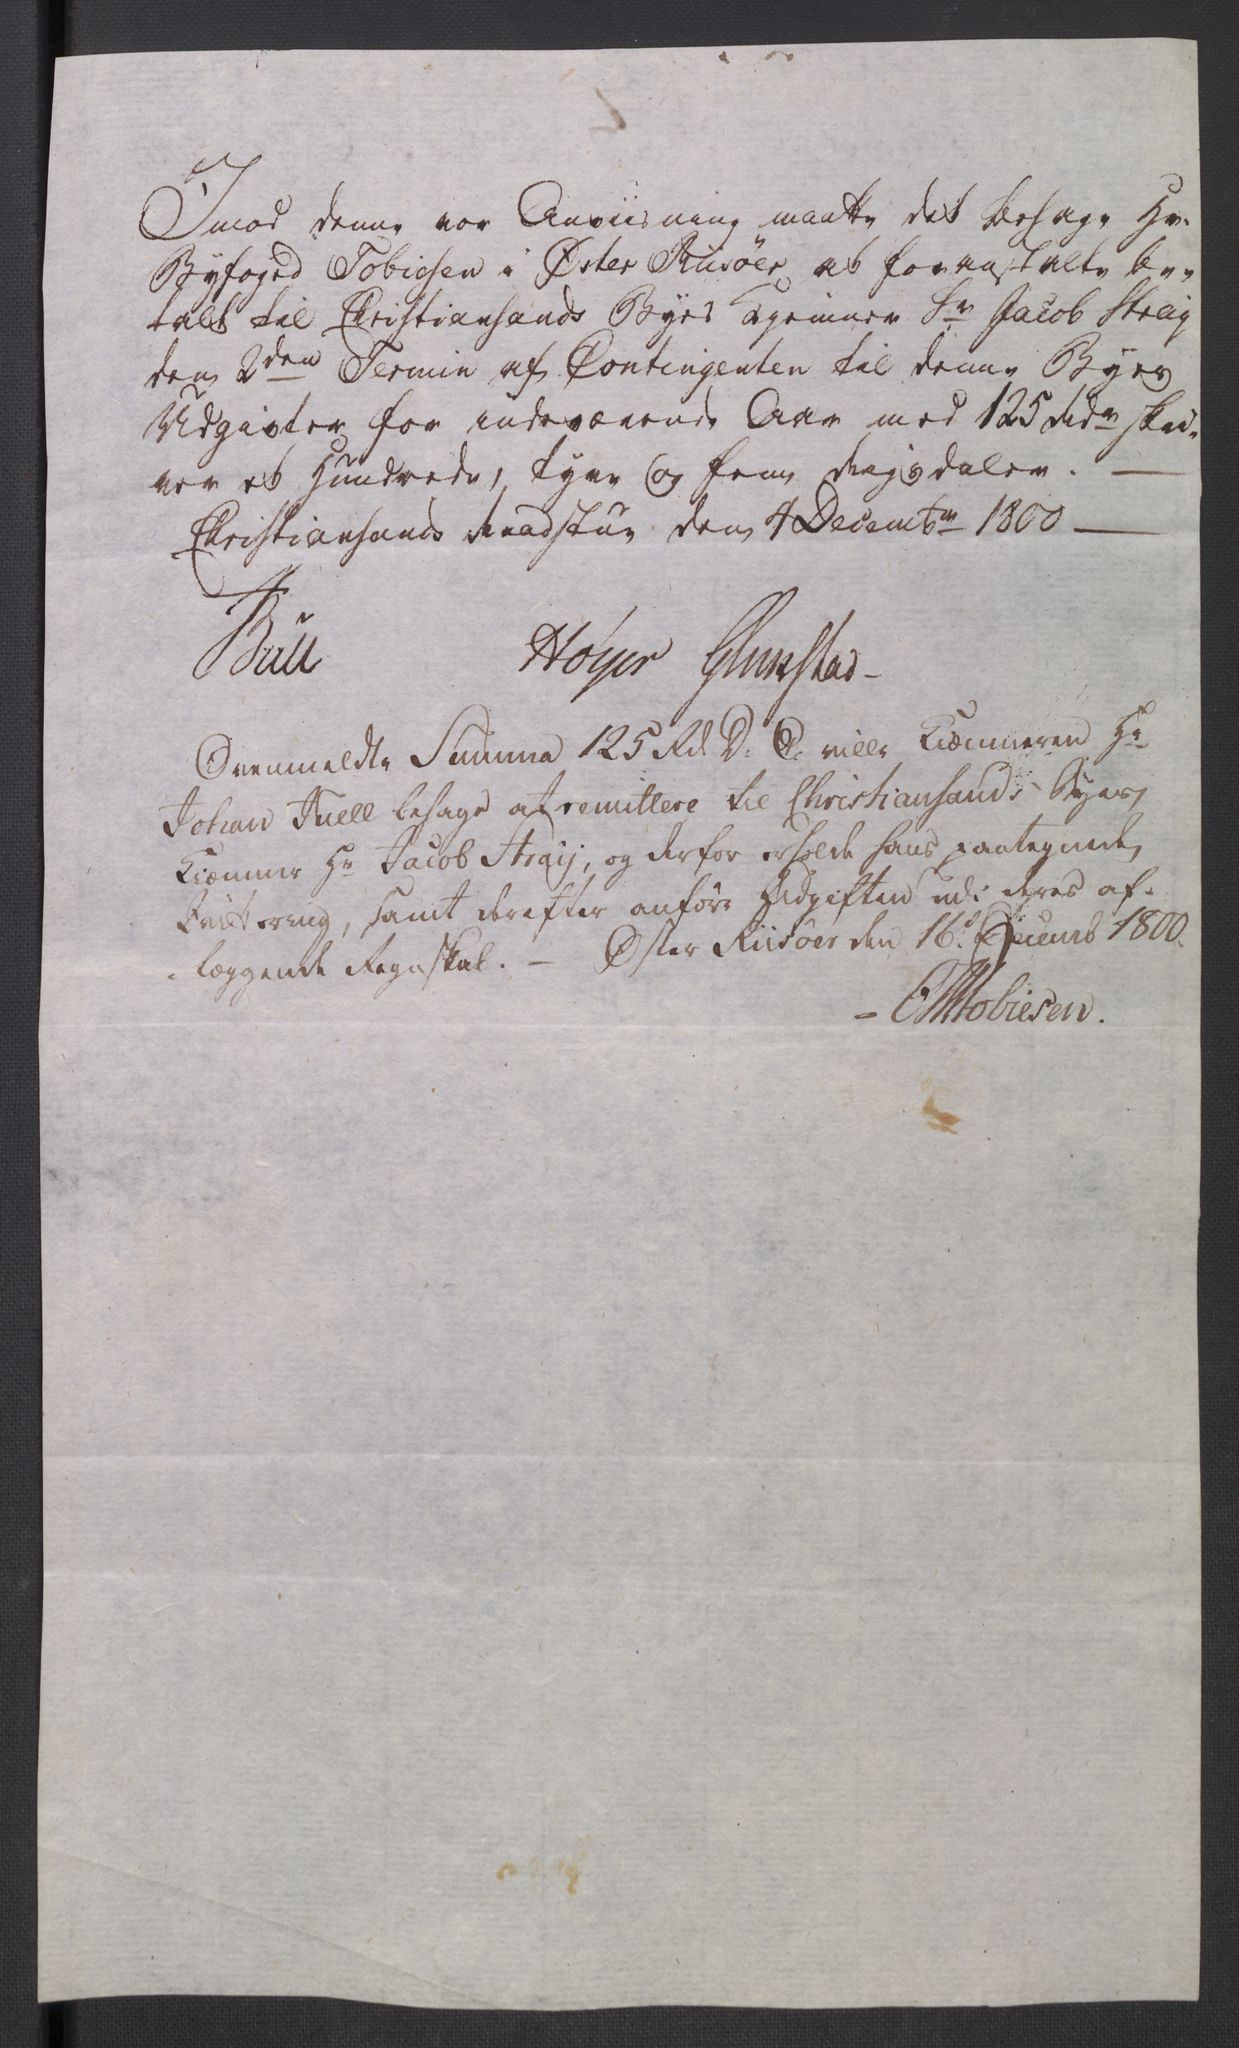 Imod denne vor Anviisning maatte det behage Hr.
Byfoged Tobiesen i Øster Riisöer at foranstalte be-
talt til Christiansands Byes Kæmner Sr Jacob Straÿ
den 2den Termin af Contingenten til denne Byes
Udgivter for indeværende Aar med 125 Rdr skri-
ver et Hundrede, tyve og fem Rigsdaler. —
Christiansands Raadstue den 4 Decembr 1800 —
Bull Höyer
Ovenmeldte Summa 125 Rd. D. C. ville Kiæmneren Hr
Johan Juell behage at remittere til Christiansands Byes
Kiæmner Hr Jacob Straÿ, og derfor erholde hans paategnede
Qvittering, samt derefter anföre Udgiften udi deres af-
læggende Regnskab. — Øster Riisöer den 16d Decemb 1800.
- Tobiesen.